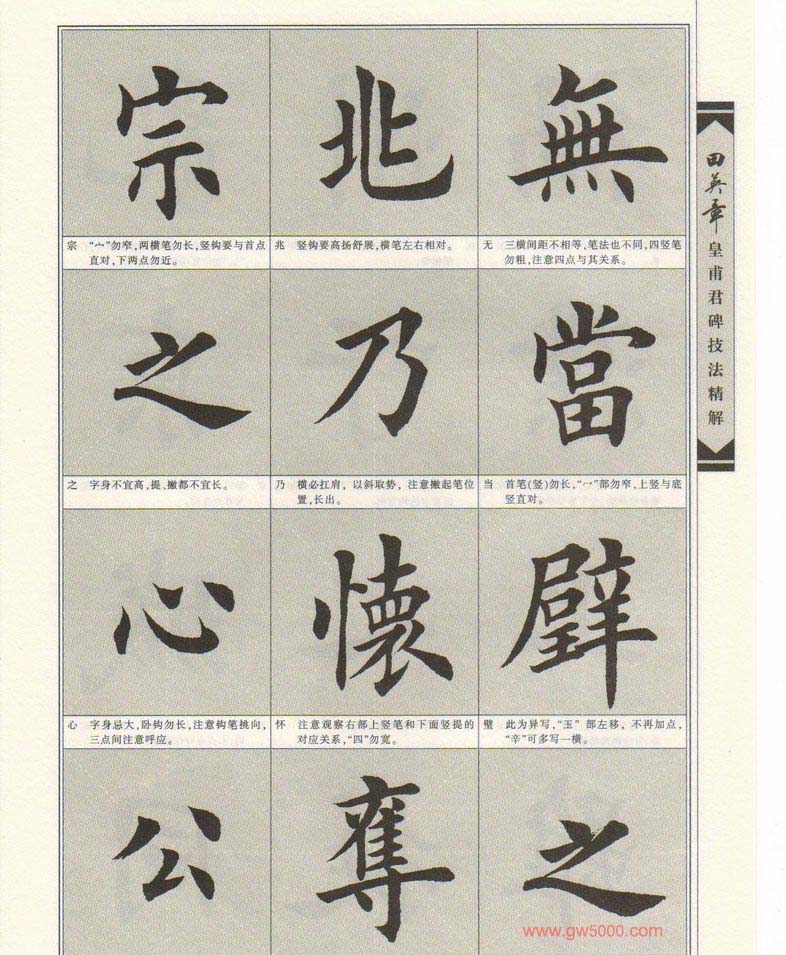 田英章皇甫君碑技法精解
無
无 三横间距不相等，笔法也不同，四竖笔
勿粗，注意四点与其关系。
當
当 首笔(竖)勿长，“冖”部勿窄，上竖与底
竖直对。
璧
璧 此为异写，“玉”部左移，不再加点，
“辛”可多写一横。
之
兆
兆 竖钩要高扬舒展，横笔左右相对。
乃
乃 横必扛肩，以斜取势，注意撇起笔位
置，长出。
懷
怀 注意观察右部上竖笔和下面竖提的
对应关系，“四”勿宽。
奪
宗
宗 “宀”勿窄，两横笔勿长，竖钩要与首点
直对，下两点勿近。
之
之 字身不宜高，提、撇都不宜长。
心
心 字身忌大，卧钩勿长，注意钩笔挑向，
三点间注意呼应。
公
www.gw5000.com